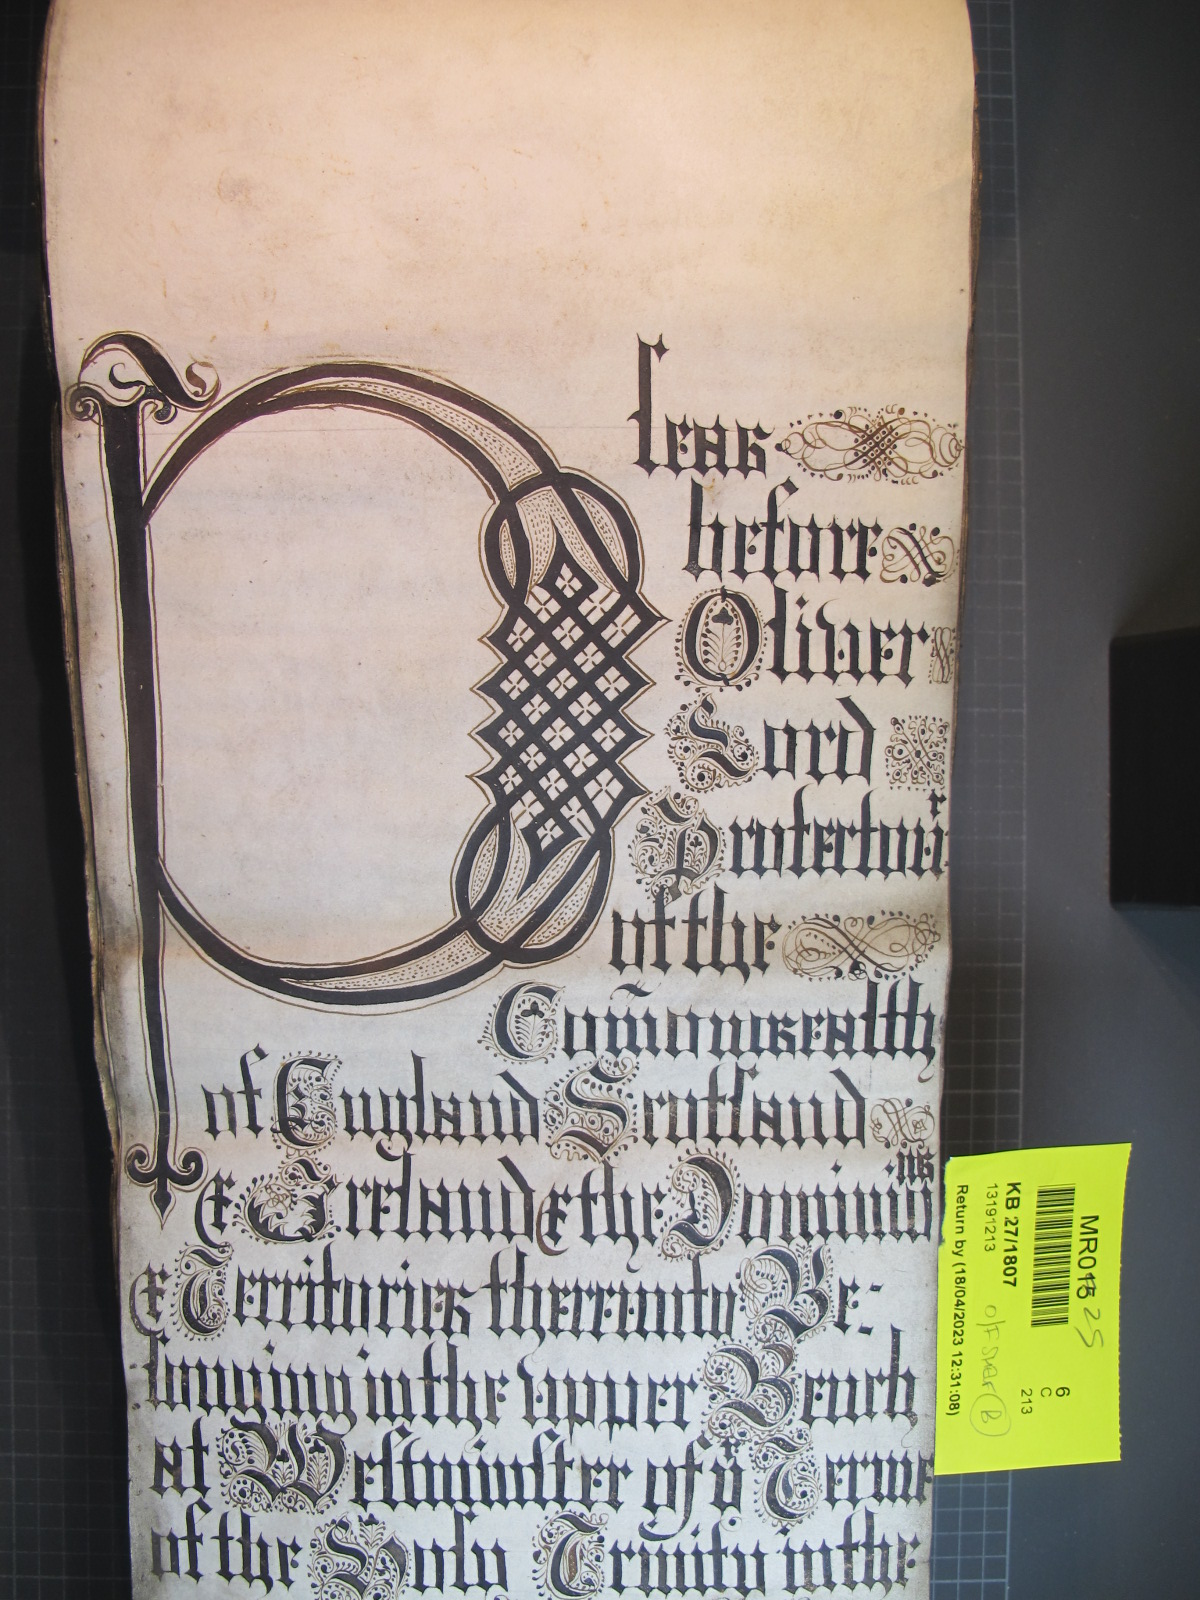 Pleas
before
Oliver
Lord
Protectour
of the
Com̃onwealth
of England Scotland
& Ireland & the Dominions
& Territories thereunto Be-
longing in the upper Bench
at Westminster of yͤ Terme
of the Holy Trinity in the
MR018 25
6
C
213
KB 27/1807
13191213
Return by (18/04/2023 12:31:08)